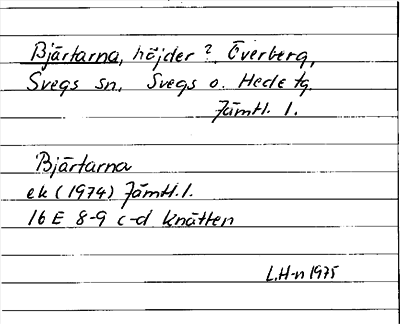 Bjärtarna, höjder? Överberg,
Svegs sn. Svegs o. Hede tg.
Jämtl. l.
Bjärtarna
ek (1974) Jämtl. l.
16 E 8-9 c-d Knätten
L.H-n 1975